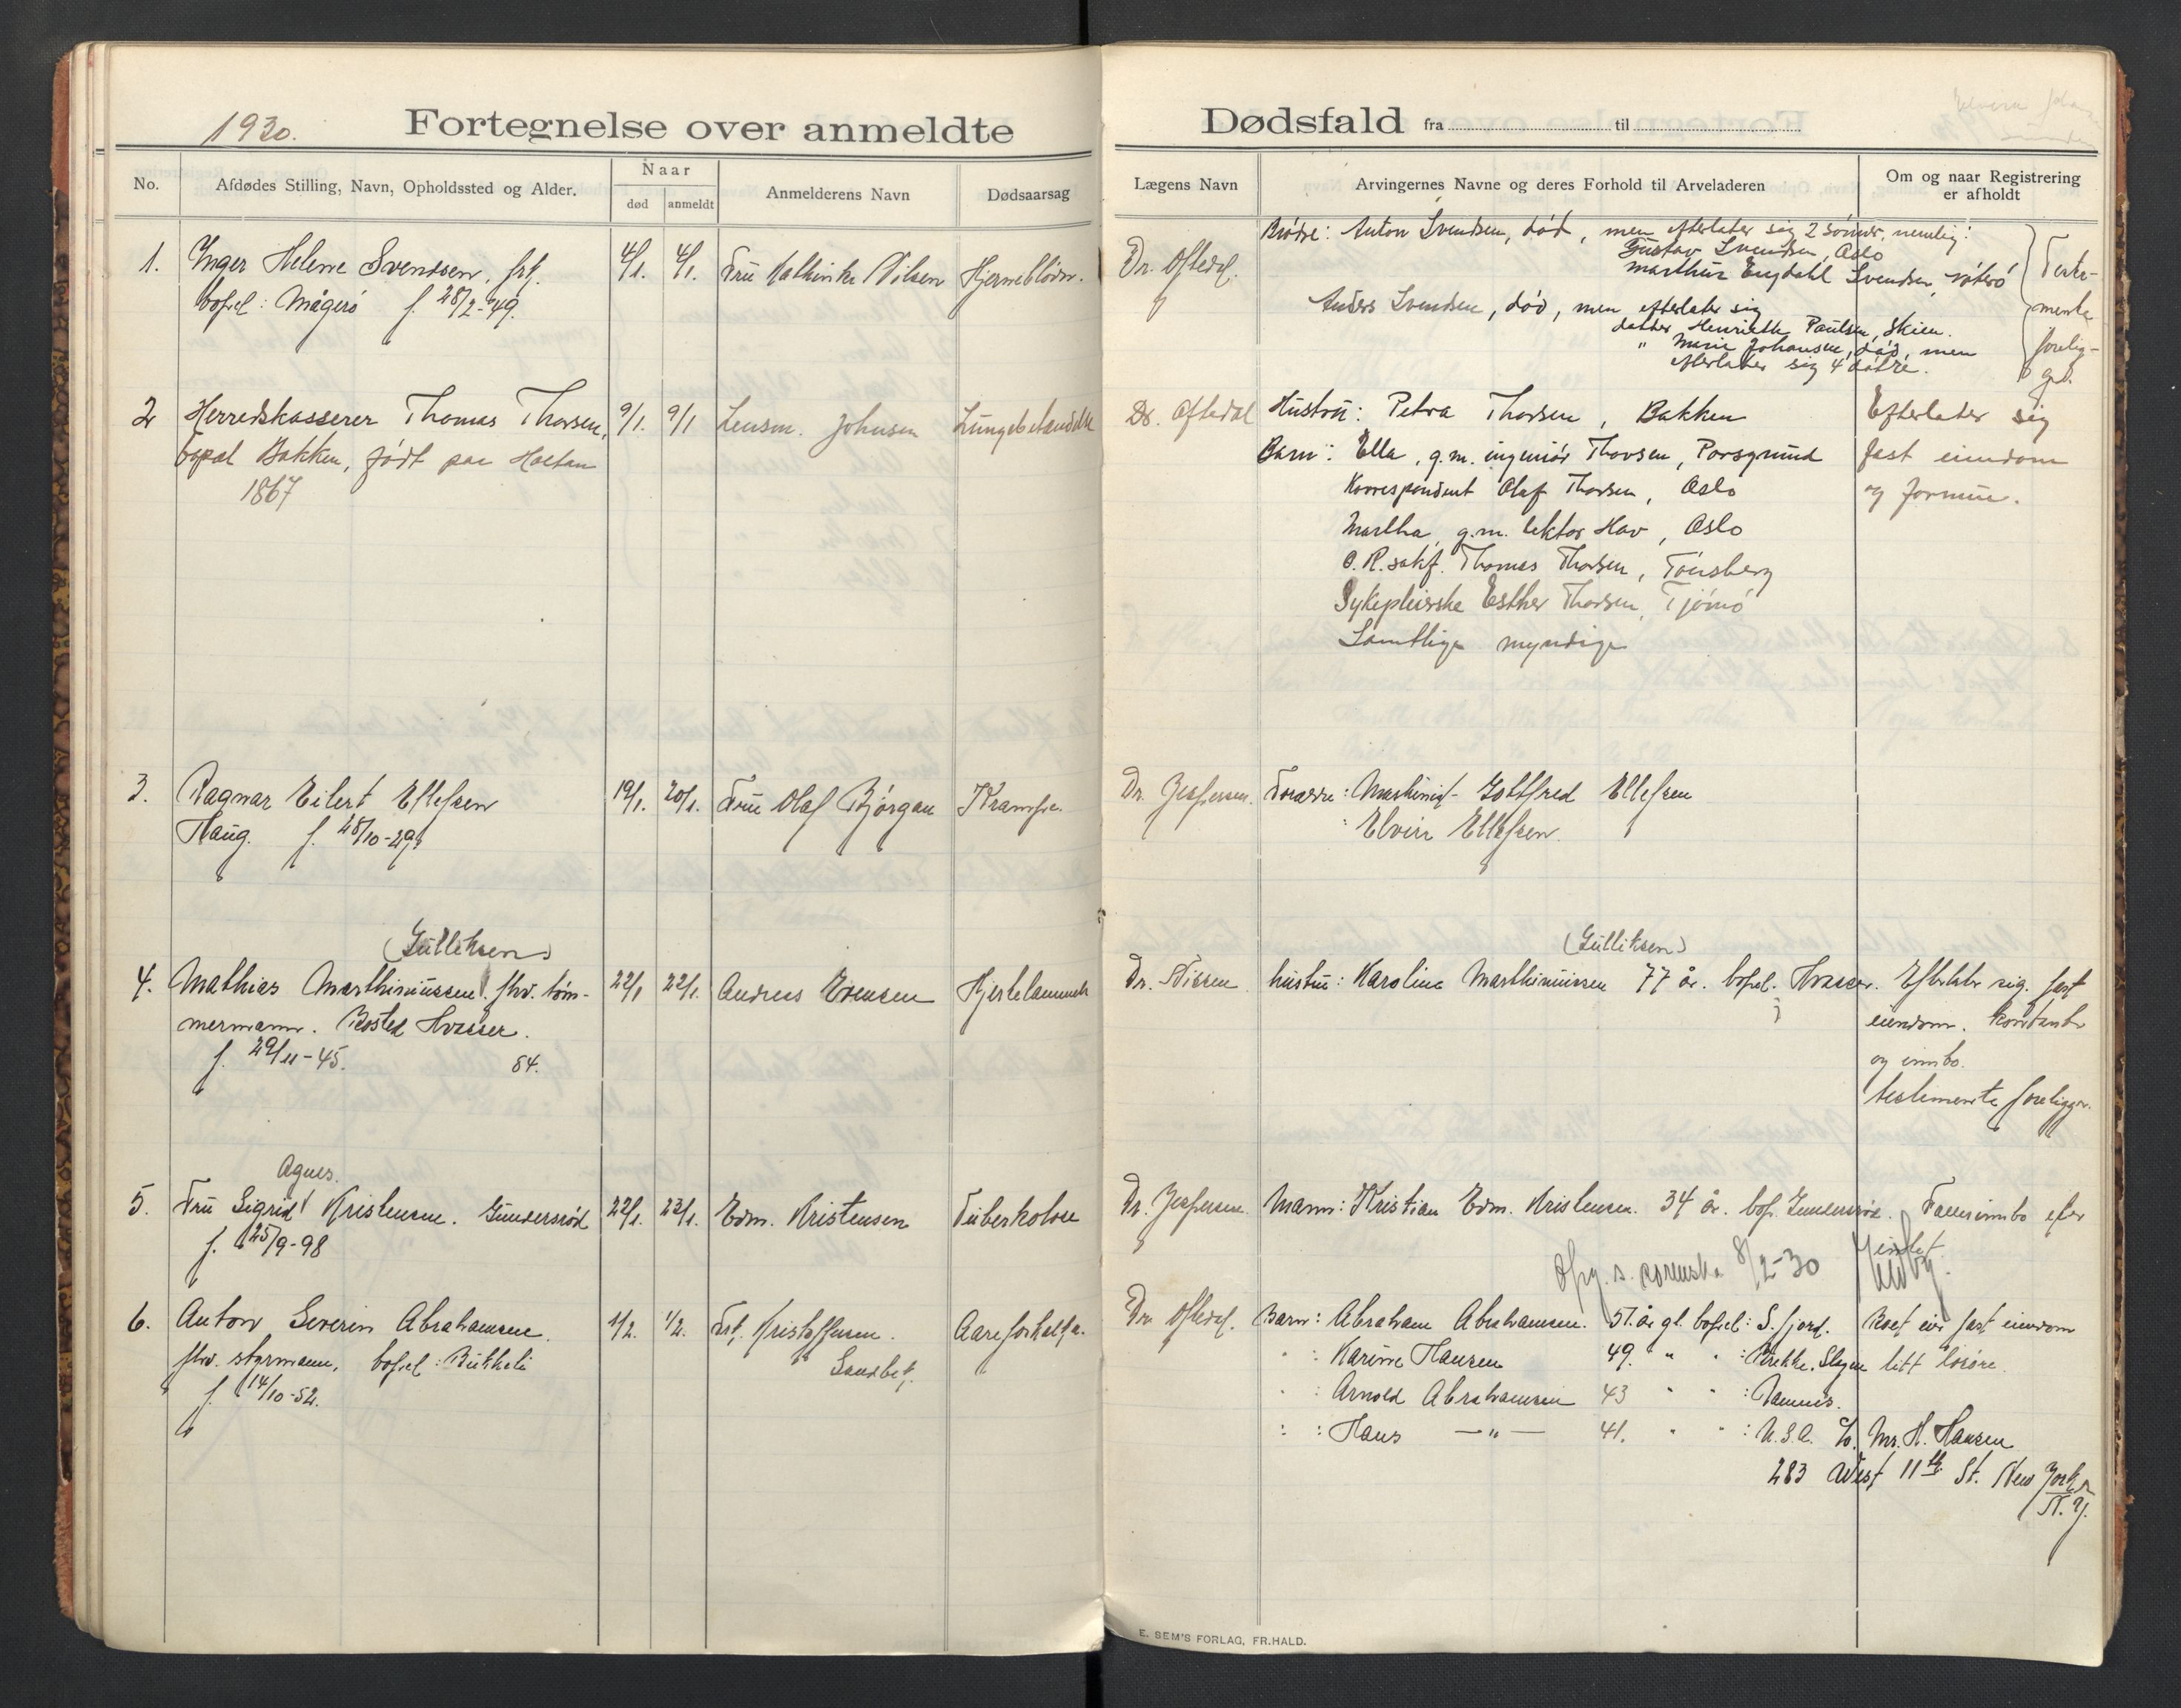 1930.
Fortegnelse over anmeldte
No.
Afdødes Stilling, Navn, Opholdssted og Alder.
Naar
død
anmeldt
Anmelderens Navn
Dødsaarsag
1. Inger Helene Svendsen, frk. 4/1. 4/1. Fru Kathinka Nilsen Hjerneblödn.
bopel: Mågerö f. 28/2-49.
2 Herredskasserer Thomas Thorsen, 9/1. 9/1 Lensm. Johnsen Lungebetændelse
bopæl Bakken, født paa Holtan
1867
3. Ragnar Eilert Ellefsen 19/1. 20/1. Fru Olaf Bjørgan Krampe.
Haug. f. 28/10-29.
(Gulliksen)
4. Mathias Marthinussen fhv. töm- 22/1 22/1. Andreas Evensen Hjertelammelse
mermann. Bosted Hvasser.
f. 29/11-45. 84.
Agnes.
5. Fru Sigrid Kristensen. Gundersröd 22/1. 23/1. Edm. Kristensen Tuberkolose
f. 25/9-98
6. Anton Severin Abrahamsen. 1/2. 1/2. Frk. Kristoffersen. Aareforkalkn.
fhv. styrmann, bopel: Bukkeli Sandbek.
f. 14/10-52.
Dødsfald fra til
Lægens Navn
Arvingernes Navne og deres Forhold til Arveladeren
Om og naar Registrering
er afholdt
Brödre: Anton Svendsen, död, men efterlater sig 2 sönner, nemlig:
Dr. Oftedal. Gustav Svendsen, Oslo
Marthin Engdahl Svendsen, Nöterö
Anders Svendsen, död, men efterlater sig
datter Henriette Paulsen, Skien.
" Marie Johansen, död, men
efterlater sig 4 dötre.
Testa-
mente
forelig-
ger.
Dr. Oftedal Hustru: Petra Thorsen, Bakken Efterlater sig
Barn: Ella, g.m. ingeniör Thorsen, Porsgrund fast eiendom
Korrespondent Olaf Thorsen, Oslo og formue.
Martha, g.m. lektor Hav, Oslo
O.R.sakf. Thomas Thorsen, Tönsberg
Sykepleierske Esther Thorsen, Tjömö
Samtlige myndige
Dr. Jespersen. Foreldre: Maskinist Gottfred Ellefsen
Elvira Ellefsen.
(Gulliksen)
Dr. Nissen hustru: Karoline Marthinussen 77 år. bopel. Hvasser. Efterlater sig fast
eiendom. kontanter
og innbo.
testemente foreligger.
Dr. Jespersen Mann: Kristian Edm. Kristensen. 34 år. bop. Gundersröd. Fellesinnbo
8/2-30
Dr. Oftedal. Barn: Abraham Abrahamsen. 51. år gl. bopel: S. fjord. Boet eier fast eiendom
" : Karine Hansen 49. " " : Brekke. Slagen litt lösöre.
" : Arnold Abrahamsen 43 " " :
" : Hans —"— 41. " " : U.S.A. c/o. Mr. H. Hansen
283 West 11th St. New York
N.Y.
E. SEM'S FORLAG, FR.HALD.